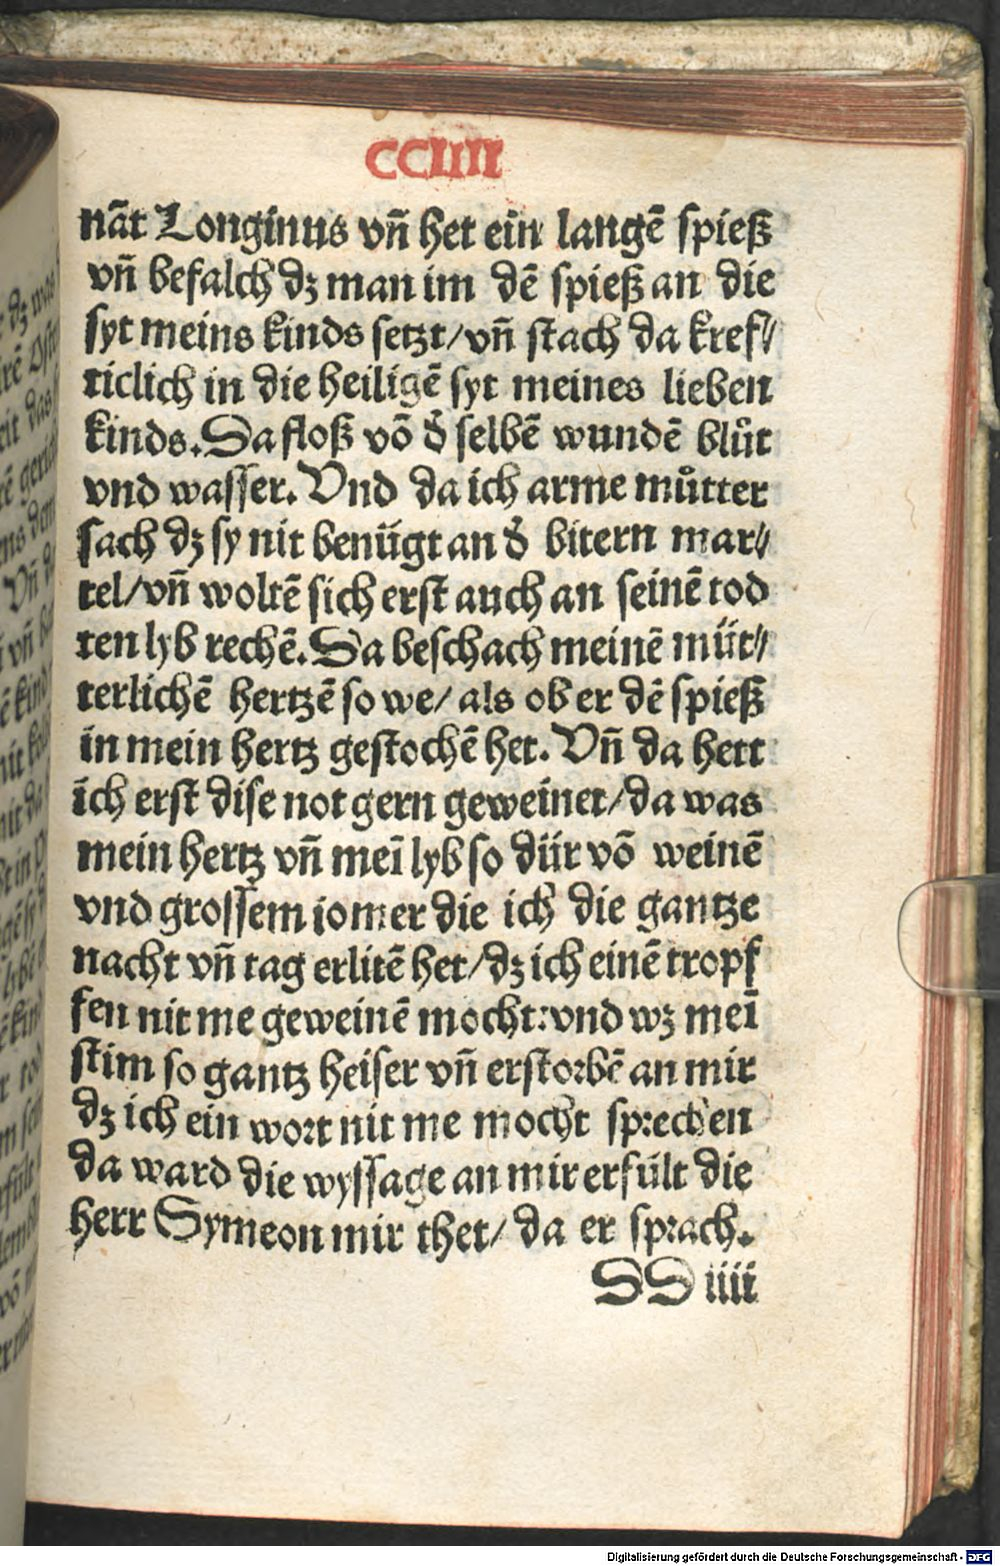 CCIIII
nāt Longinus vn̄ het ein langē spieß
vn̄ befalch dz man im dē spieß an die
syt meins kinds setzt/vn̄ stach da kref⸗
ticlich in die heiligē syt meines lieben
kinds. Da floß vō d̕ selbē wundē blůt
vnd wasser. Vnd da ich arme můtter
sach dz sy nit benügt an d̕ bitern mar⸗
tel/vn̄ woltē sich erst auch an seinē tod
ten lyb rechē. Da beschach meinē müt⸗
terlichē hertzē so we/ als ob er dē spieß
in mein hertz gestochē het. Vn̄ da hett
ich erst dise not gern geweinet/da was
mein hertz vn̄ meī lyb so dür vō weinē
vnd grossem iomer die ich die gantze
nacht vn̄ tag erlitē het/dz ich einē tropf
fen nit me geweinē mocht: vnd wz meī
stim so gantz heiser vn̄ erstorbē an mir
dz ich ein wort nit me mocht sprechen
da ward die wyssage an mir erfült die
herr Symeon mir thet/ da er sprach.
DD iiii
Digitalisierung gefördert durch die Deutsche Forschungsgemeinschaft - DFG